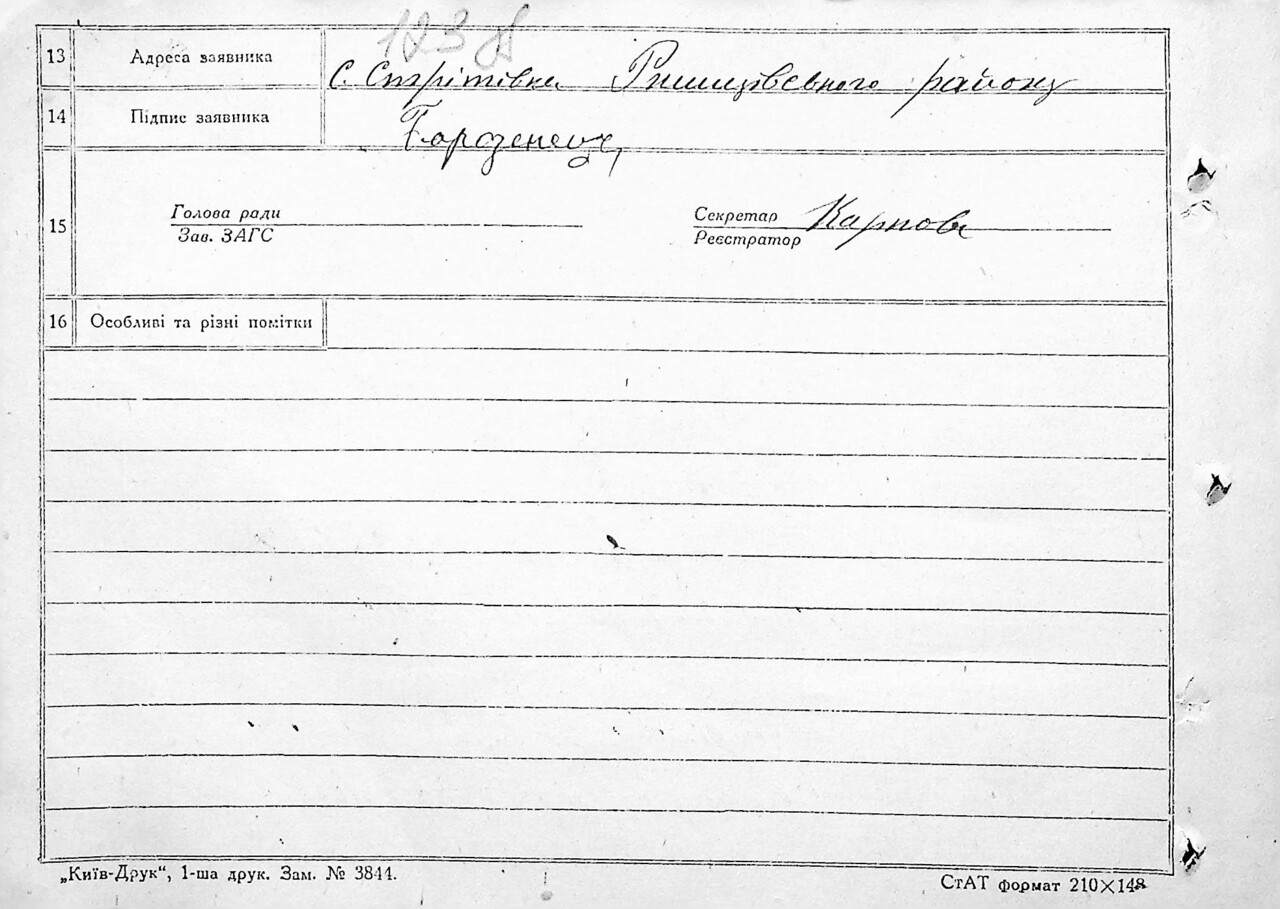 123
13 Адреса заявника с. Спэрітовка Ришцовського району
14 Підпис заявника
15 Голова ради Секретар Карпова
Зав. ЗАГС Реєстратор
16 Особливі та різні помітки
„Київ-Друк“, 1-ша друк. Зам. № 3844.
СтАТ формат 210×148